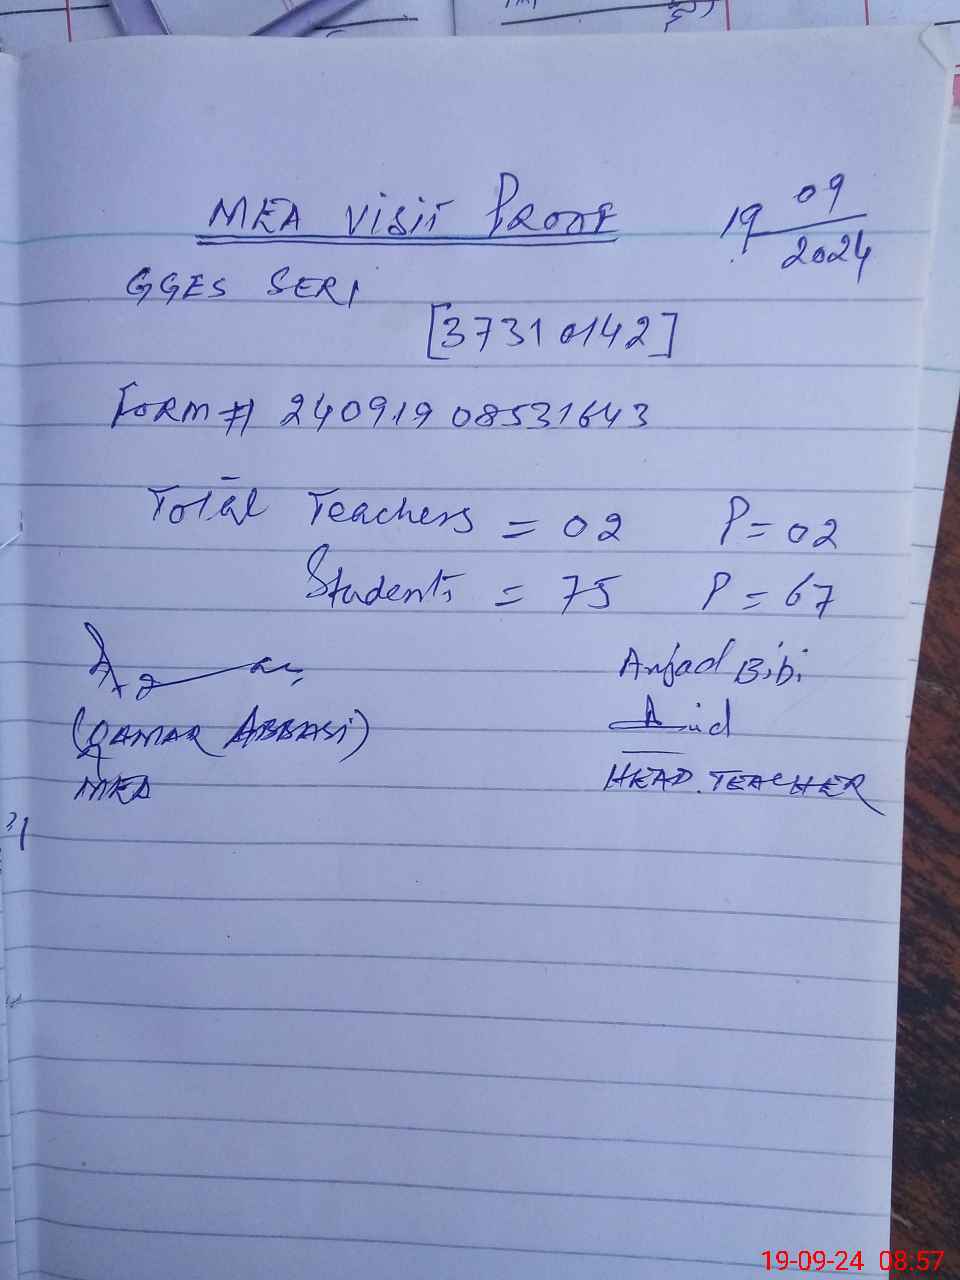 MEA VISIT PROOF 19 09/2024
GGES SERI
[37310142]
FORM # 240919 08531643
Total Teachers = 02 P = 02
Students = 75 P = 67
Amjad Bibi
(QAMAR ABBASI)
MEA
HEAD.TEACHER
19-09-24 08:57